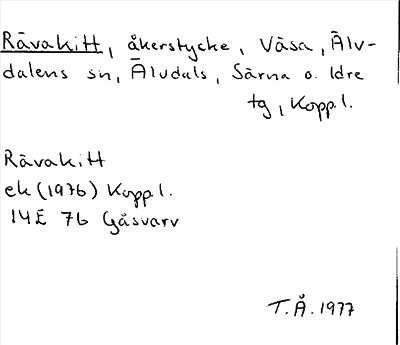 Råvakitt, åkerstycke, Våsa, Älv-
dalens sn, Älvdals, Särna o. Idre
tg, Koppl.
Råvakitt
ek (1976) Koppl.
14E 7b Gåsvarv
T.Å. 1977